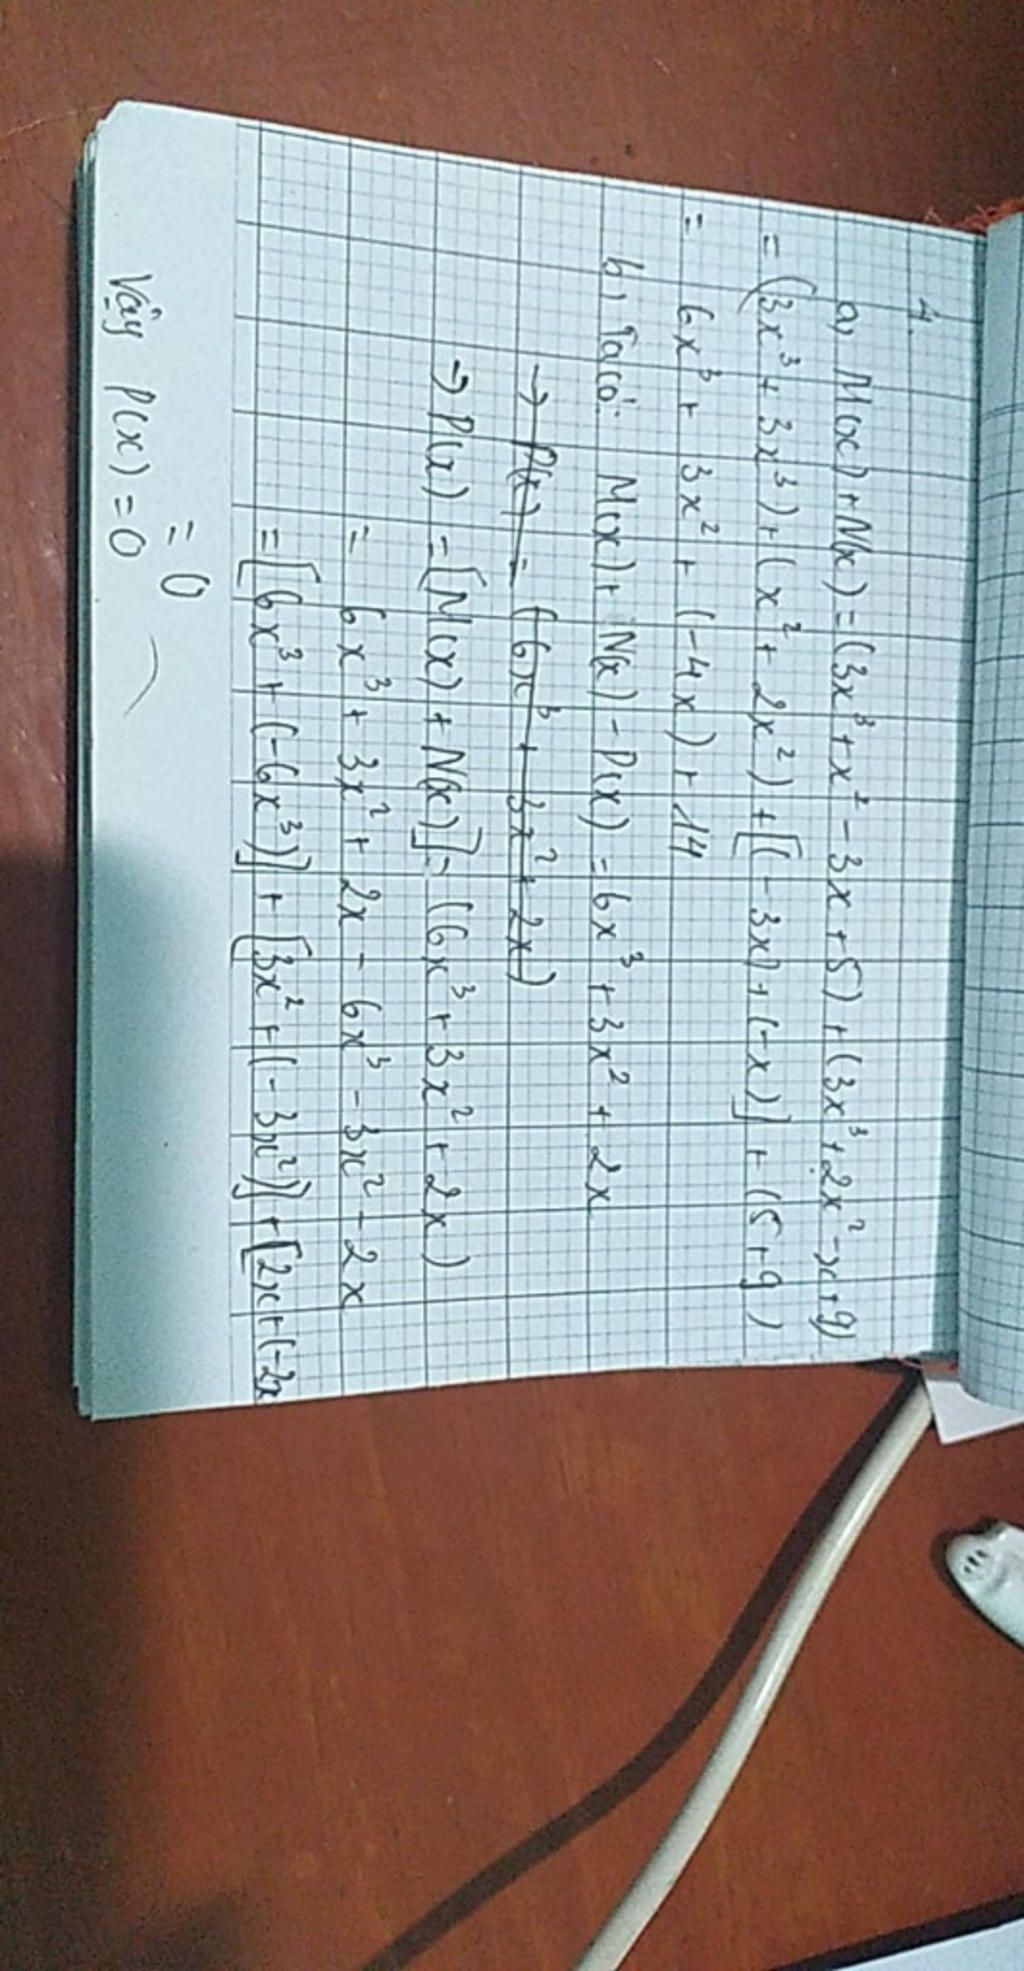 4.
a, M(x) + N(x) = (3x³ + x² - 3x + 5) + (3x³ + 2x² - x + 9)
= (3x³ + 3x³) + (x² + 2x²) + [(-3x) + (-x)] + (5 + 9)
= 6x³ + 3x² + (-4x) + 14
b, Ta có: M(x) + N(x) - P(x) = 6x³ + 3x² + 2x
→ P(x) = (6x³ + 3x² + 2x)
→ P(x) = [M(x) + N(x)] - (6x³ + 3x² + 2x)
= 6x³ + 3x² + 2x - 6x³ - 3x² - 2x
= [6x³ + (-6x³)] + [3x² + (-3x²)] + [2x + (-2x
= 0
Vậy P(x) = 0